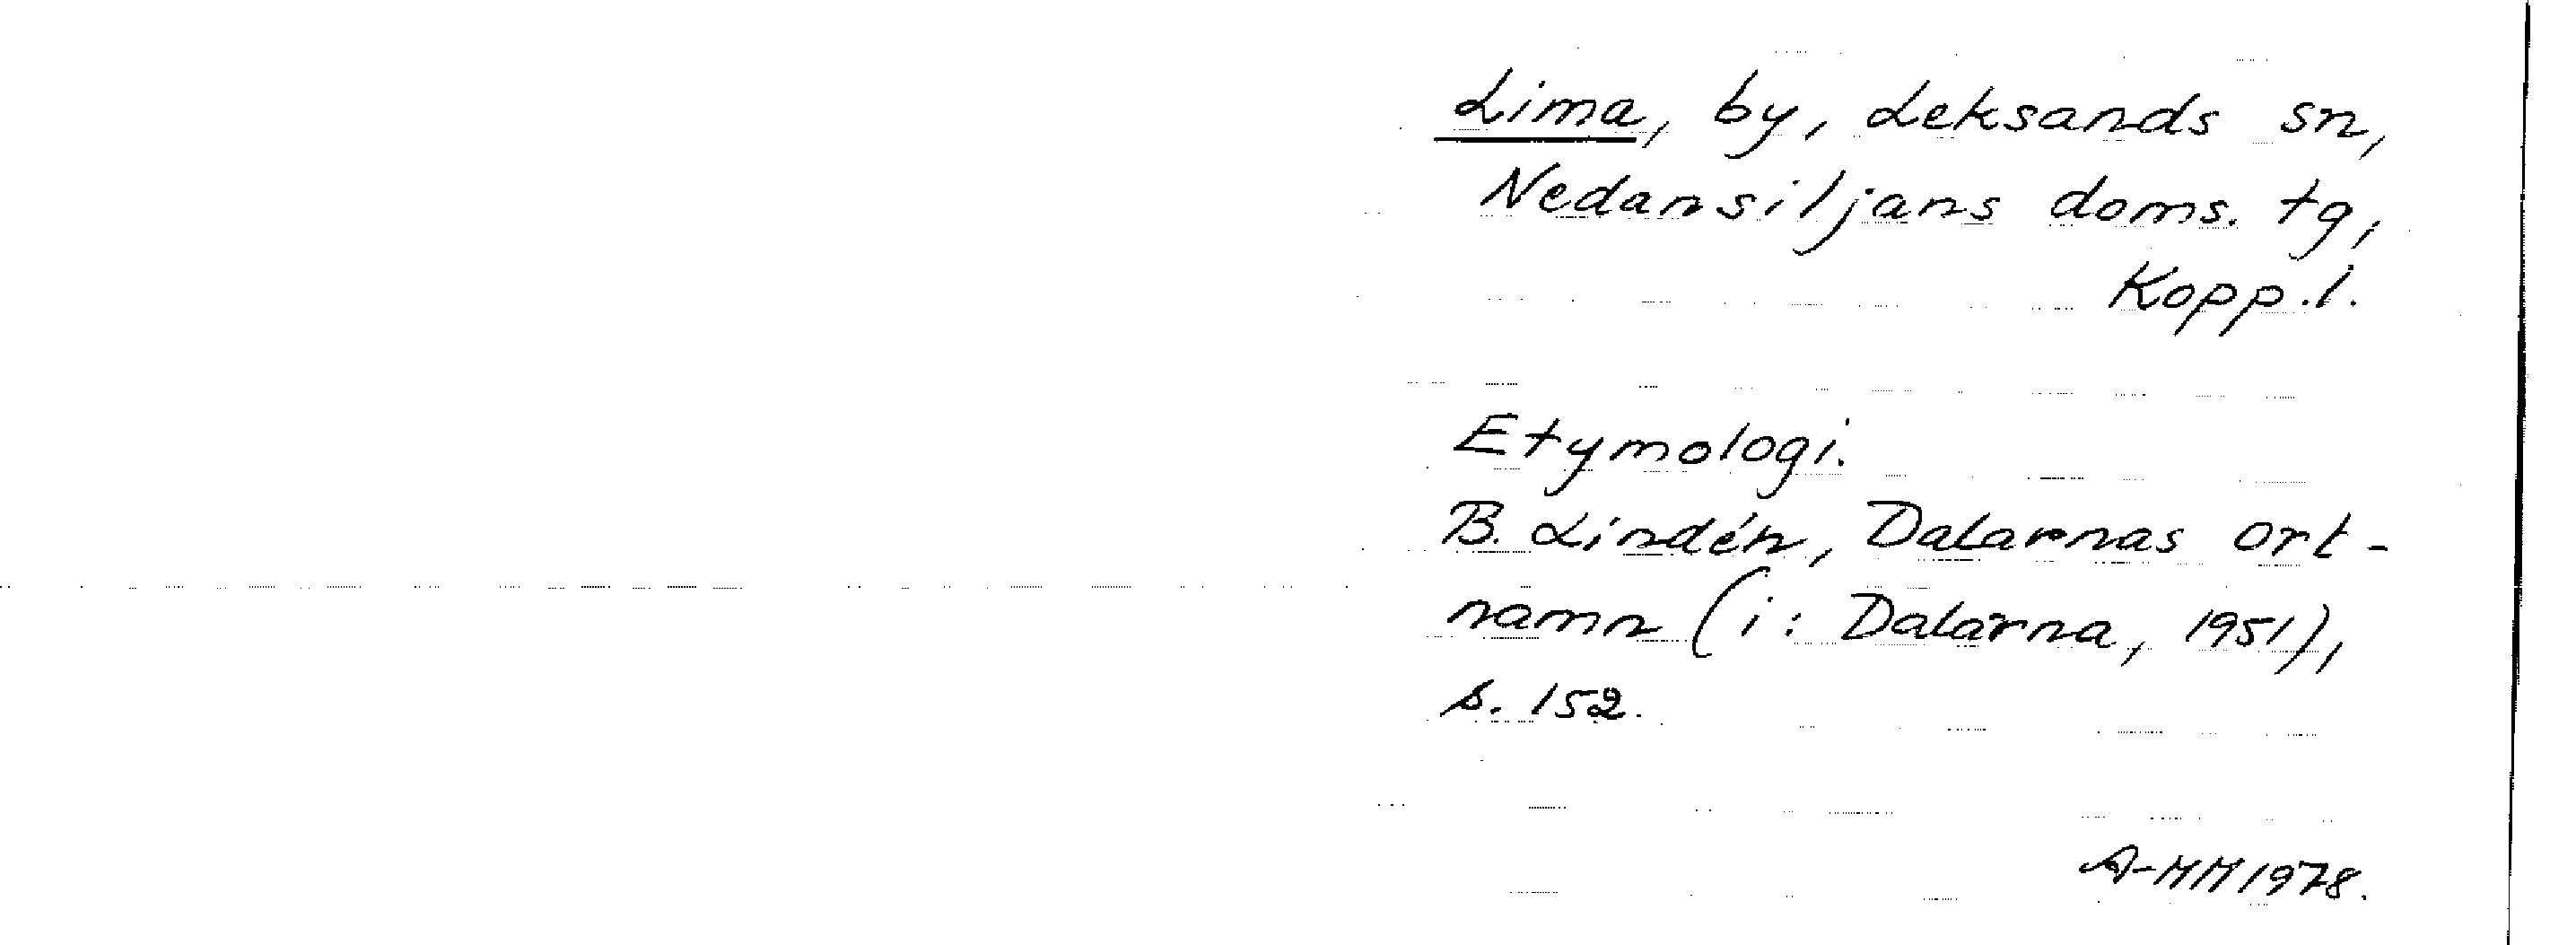 Lima, by, Leksands sn,
Nedansiljans doms. tg,
Kopp. l.
Etymologi.
B. Lindén, Dalarnas ort-
namn (i: Dalarna, 1951),
s. 152.
A-MM 1978.